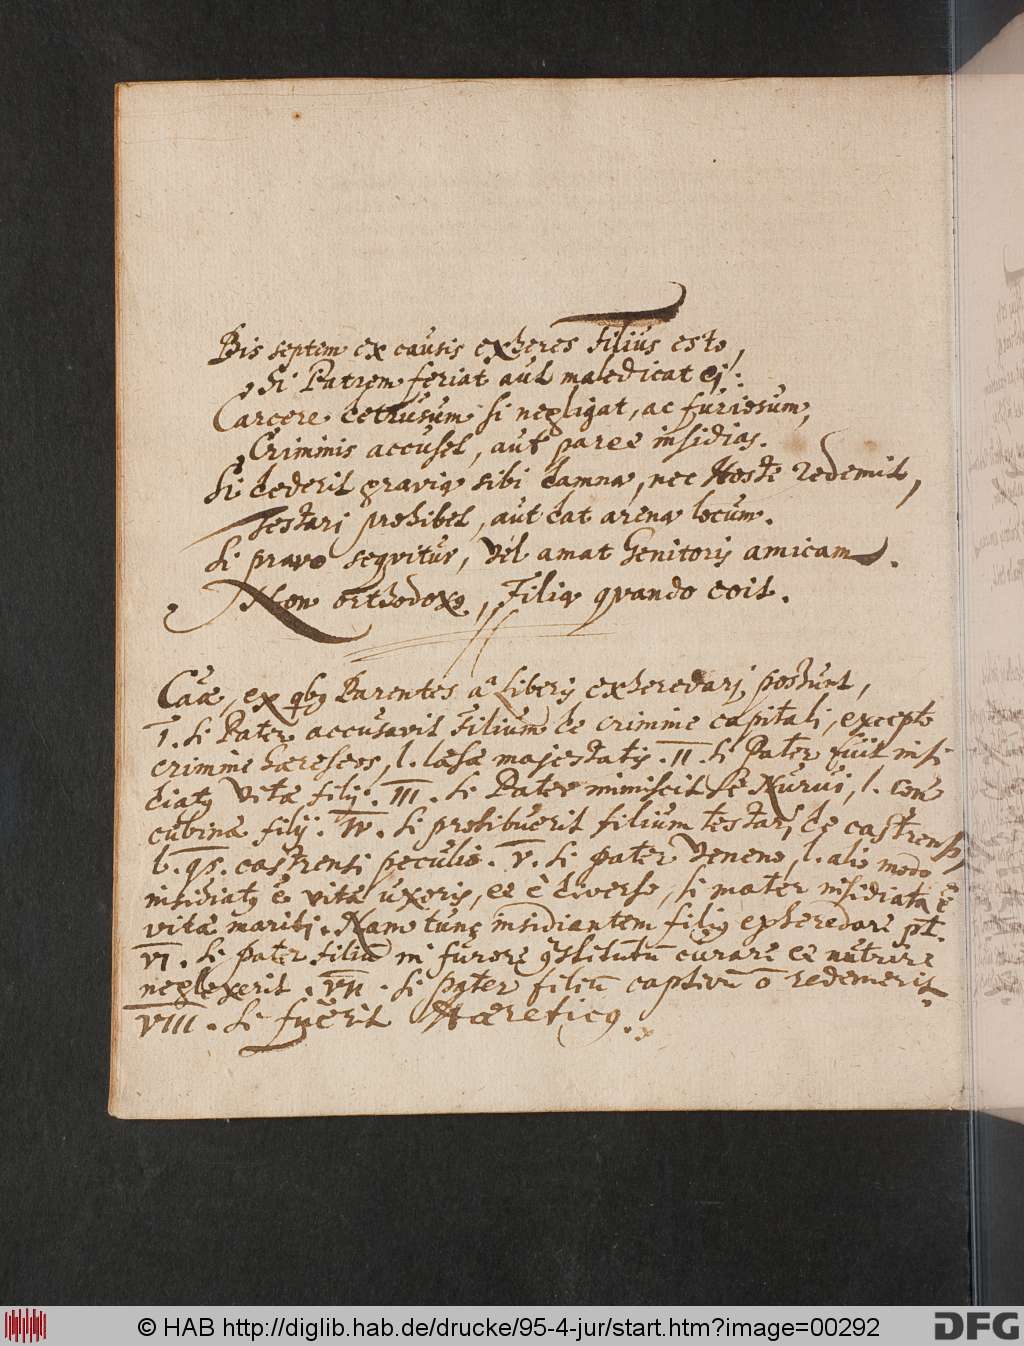 Bis septem ex causis exheres Filius esto,
Si Patrem feriat aut maledicat ei:
Carcere detrusum si negligat, ac furiosum,
Criminis accuset, aut paret insidias.
Si dederit gravia sibi damna, nec Hoste redemit,
Testari prohibet, aut dat arena locum.
Si pravo sequitur, vel amat Genitoris amicam.
Non orthodoxꝰ, Filia quando coit.
Cauae, ex qbꝰ Parentes a Liberis exheredari possunt,
I. Si Pater accusavit Filium de crimine capitali, excepto
crimine haereseos, l. laesae majestatis. II. Si Pater fuit insi
diatꝰ vitae filij. III. Si Pater immiscit se Nurui, l. con
cubinae filij. IV. Si prohibuerit filium testari de castrensi,
l. qs. castrensi peculio. V. Si pater veneno, l. alio modo
insidiatꝰ ē vitae uxoris, et è diverso, si mater insidiata ē
vitae mariti. Nam tunc insidiantem filiꝰ exheredare pt.
VI. Si pater filiū in furore ꝯstitutū curare et nutrire
neglexerit. VII. Si pater filiū captivū ō redemerit.
VIII. Si fuerit Haereticꝰ.
© HAB http://diglib.hab.de/drucke/95-4-jur/start.htm?image=00292
DFG